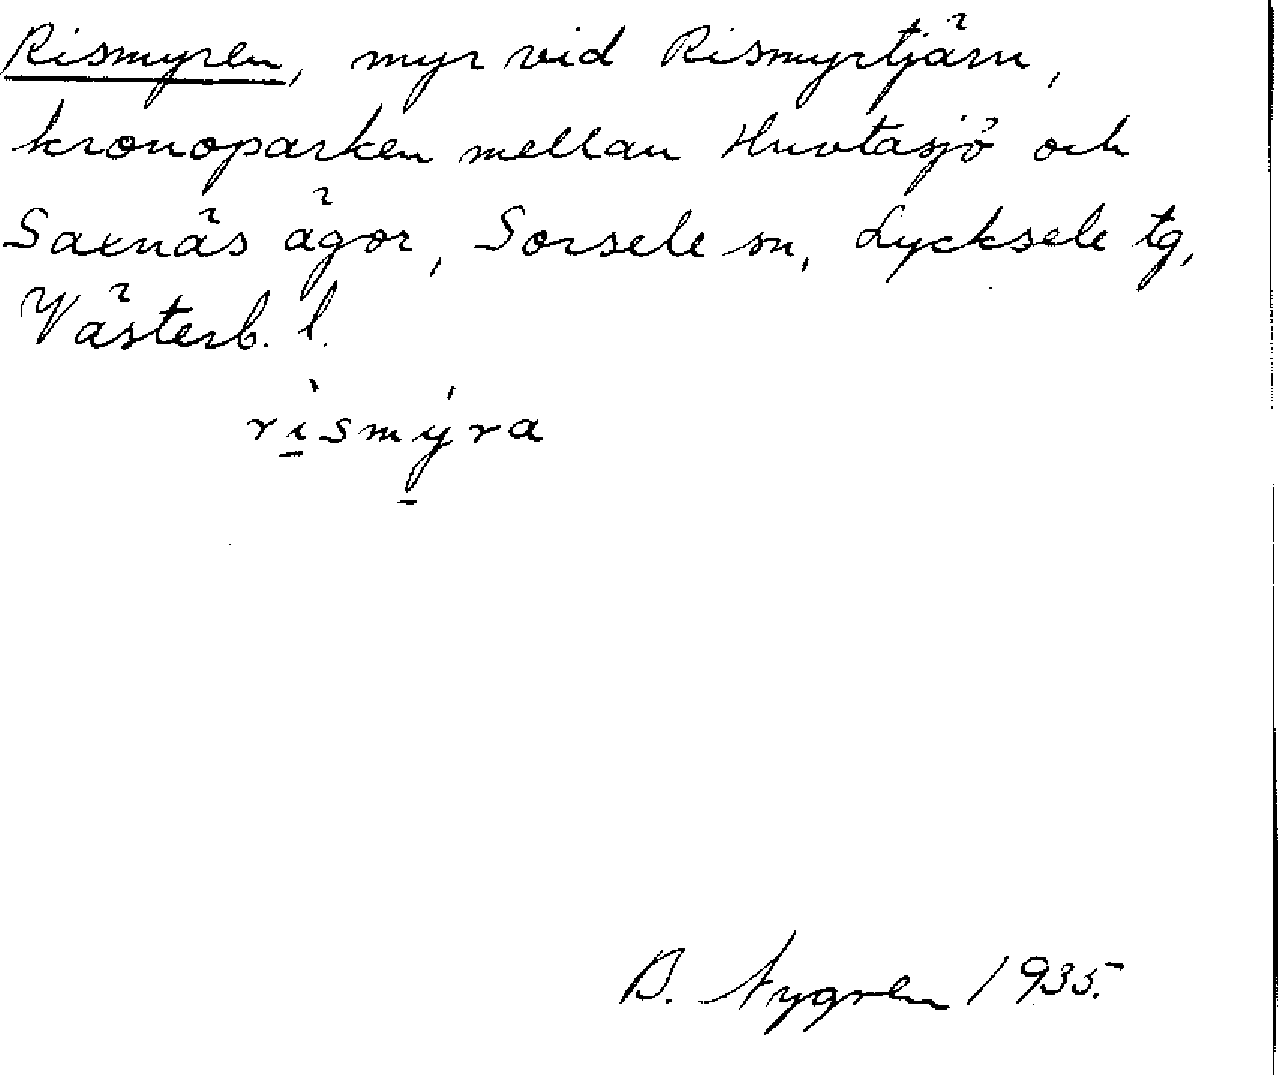 Rismyren, myr vid Rismyrtjärn,
kronoparken mellan Huvtasjö och
Saxnäs ägor, Sorsele sn, Lycksele tg,
Västerb. l.
rìsmýra
B. Nygren 1935.